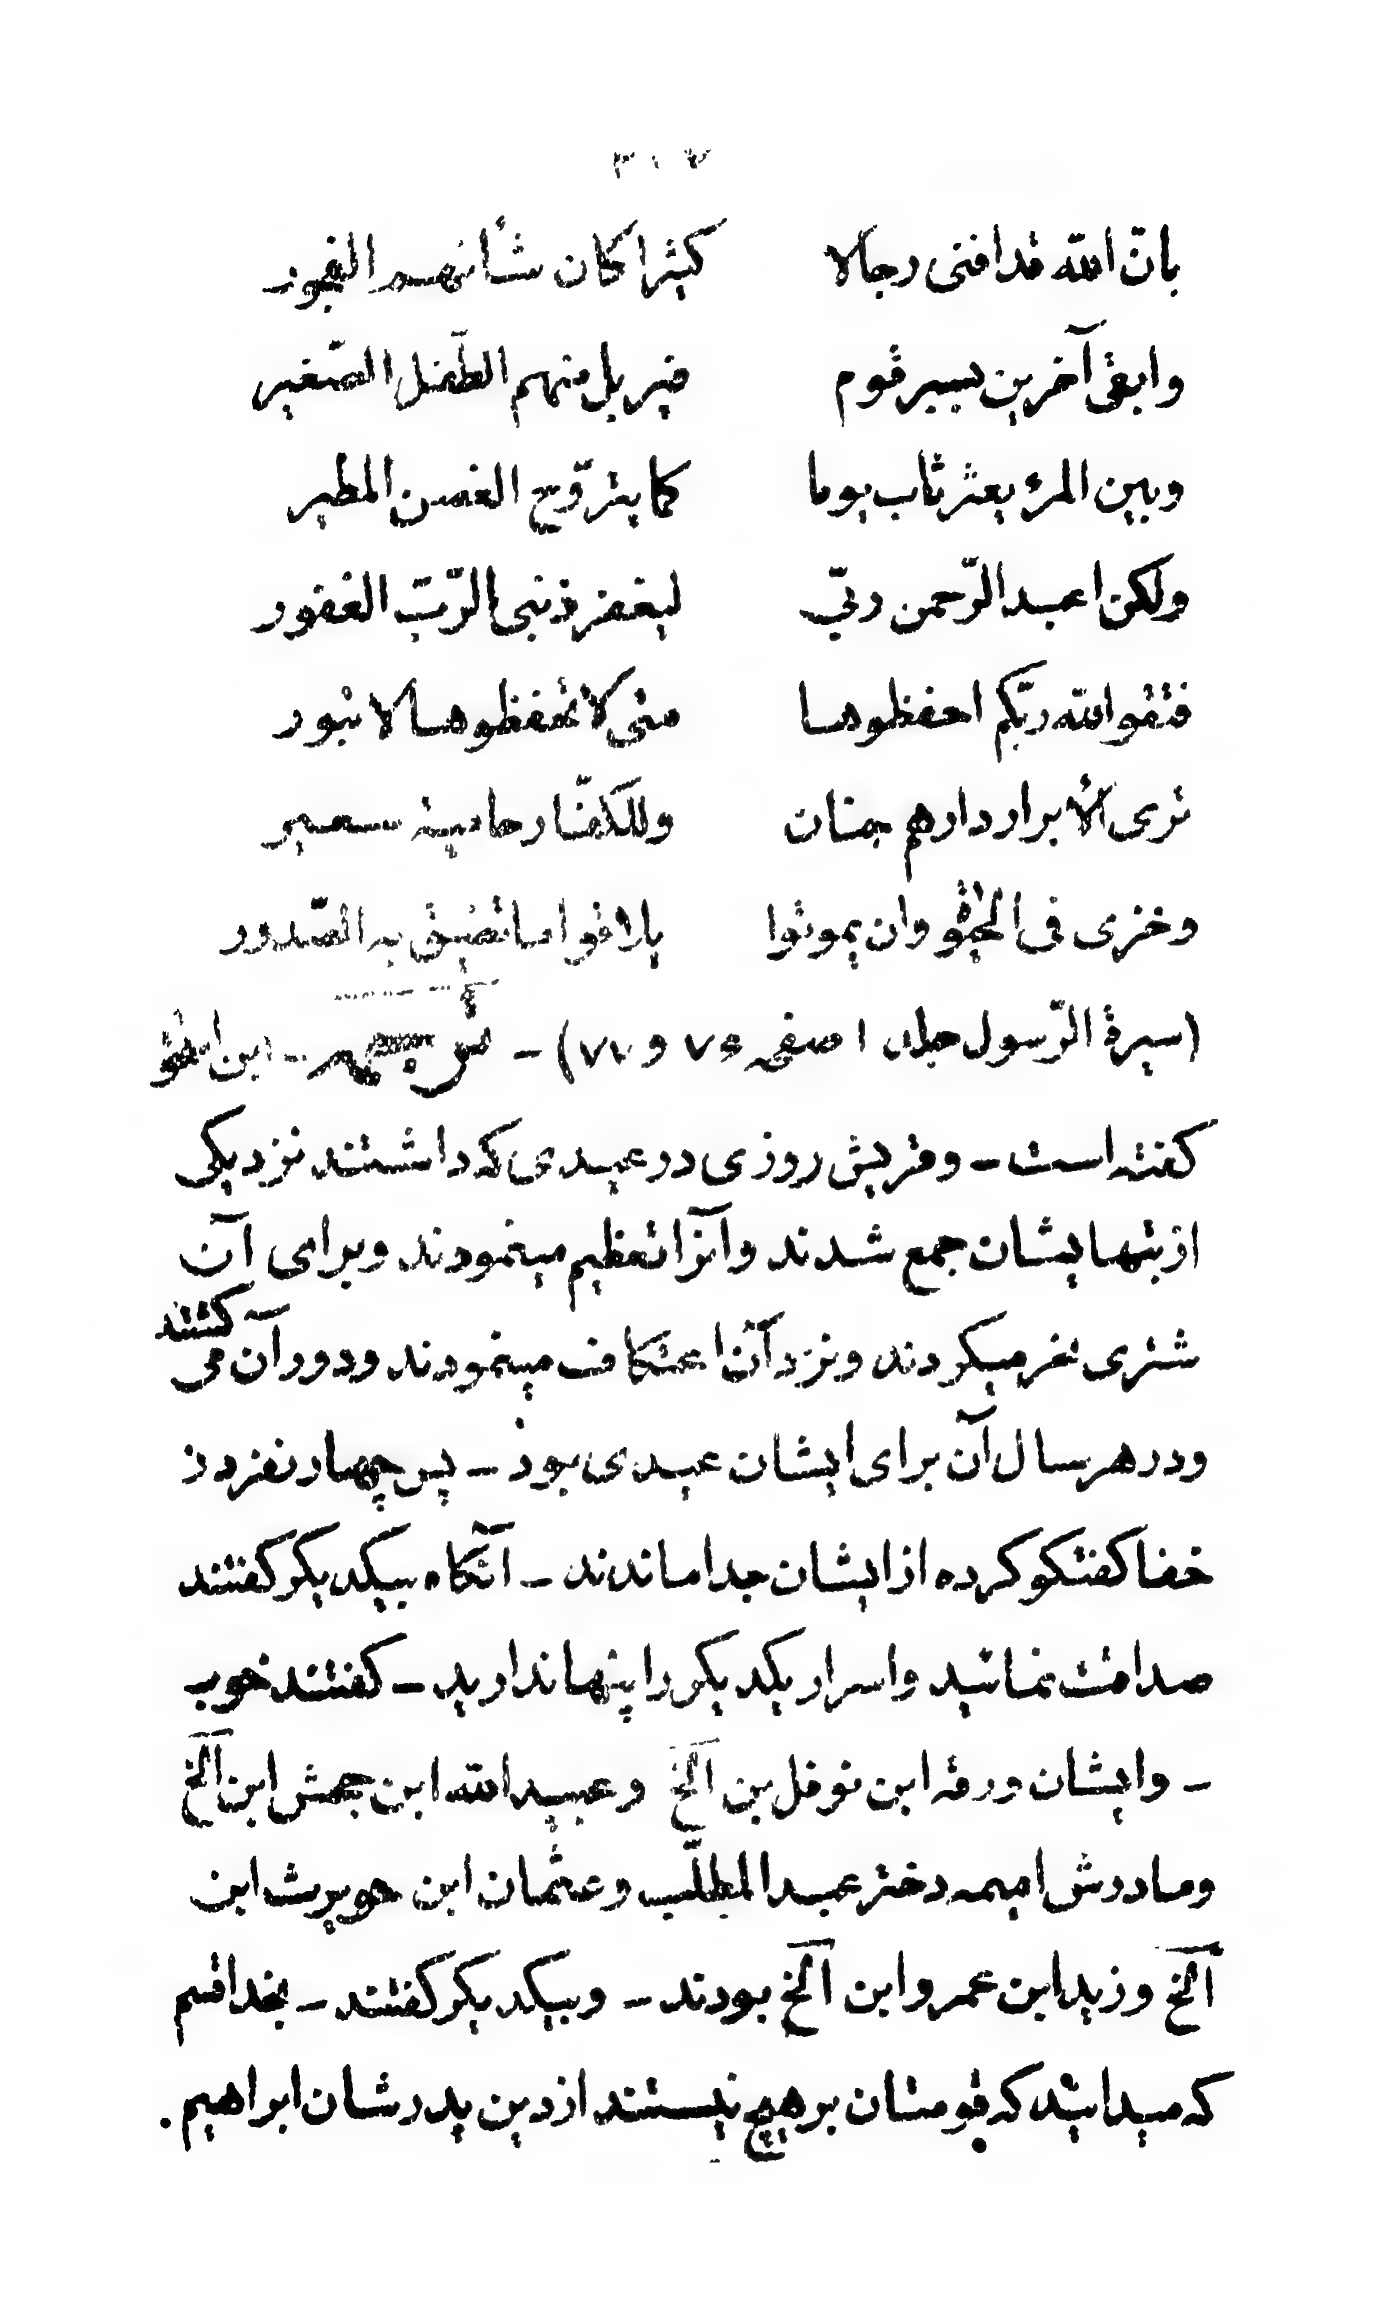 بانّ الله قد افنی رجالا کثیرا کان شأنهم الفجور
وابقی آخرین ببیر قوم فیربل منهم الطّفل الصّغیر
وبین المرء یعثر ثاب یوما کما یتروّح الغصن المطیر
ولکن اعبد الرّحمن ربّی لیغفر ذنبی الرّبّ الغفور
فتقوالله ربّکم احفظوها متی لا تحفظوها لا تبور
تری الأبرار دارهم جنان وللکفّار حامیة سعیر
وخزی فی الحیٰوة وان یموتوا یلاقوا ما تضیق به الصّدور
(سیرة الرّسول جلد ۱ صفحه ۷۶ و ۷۷) ـ ابن اسحٰق
کفته است ـ وقریش روزی در عیدی که داشتند نزد یکی
از بتهایشان جمع شدند وآنرا تعظیم مینمودند وبرای آن
شتری نحر میکردند ونزد آن اعتکاف مینمودند ودور آن می کشتند
ودر هر سال آن برای ایشان عیدی بود ـ پس چهار نفر در
خفا کفتکو کرده از ایشان جدا ماندند ـ آنکاه بیکدیکر کفتند
صداقت نمائید واسرار یکدیکر را پنهان دارید ـ کفتند خوب
ـ وایشان ورقه ابن نوفل بن الخ وعبیدالله ابن جحش ابن الخ
ومادرش امیمه دختر عبد المطلّب وعثمان ابن حویرث ابن
الخ وزید ابن عمرو ابن الخ بودند ـ وبیکدیکر کفتند ـ بخدا قسم
که میدانید که قومتان بر هیچ نیستند از دین پدرشان ابراهیم .